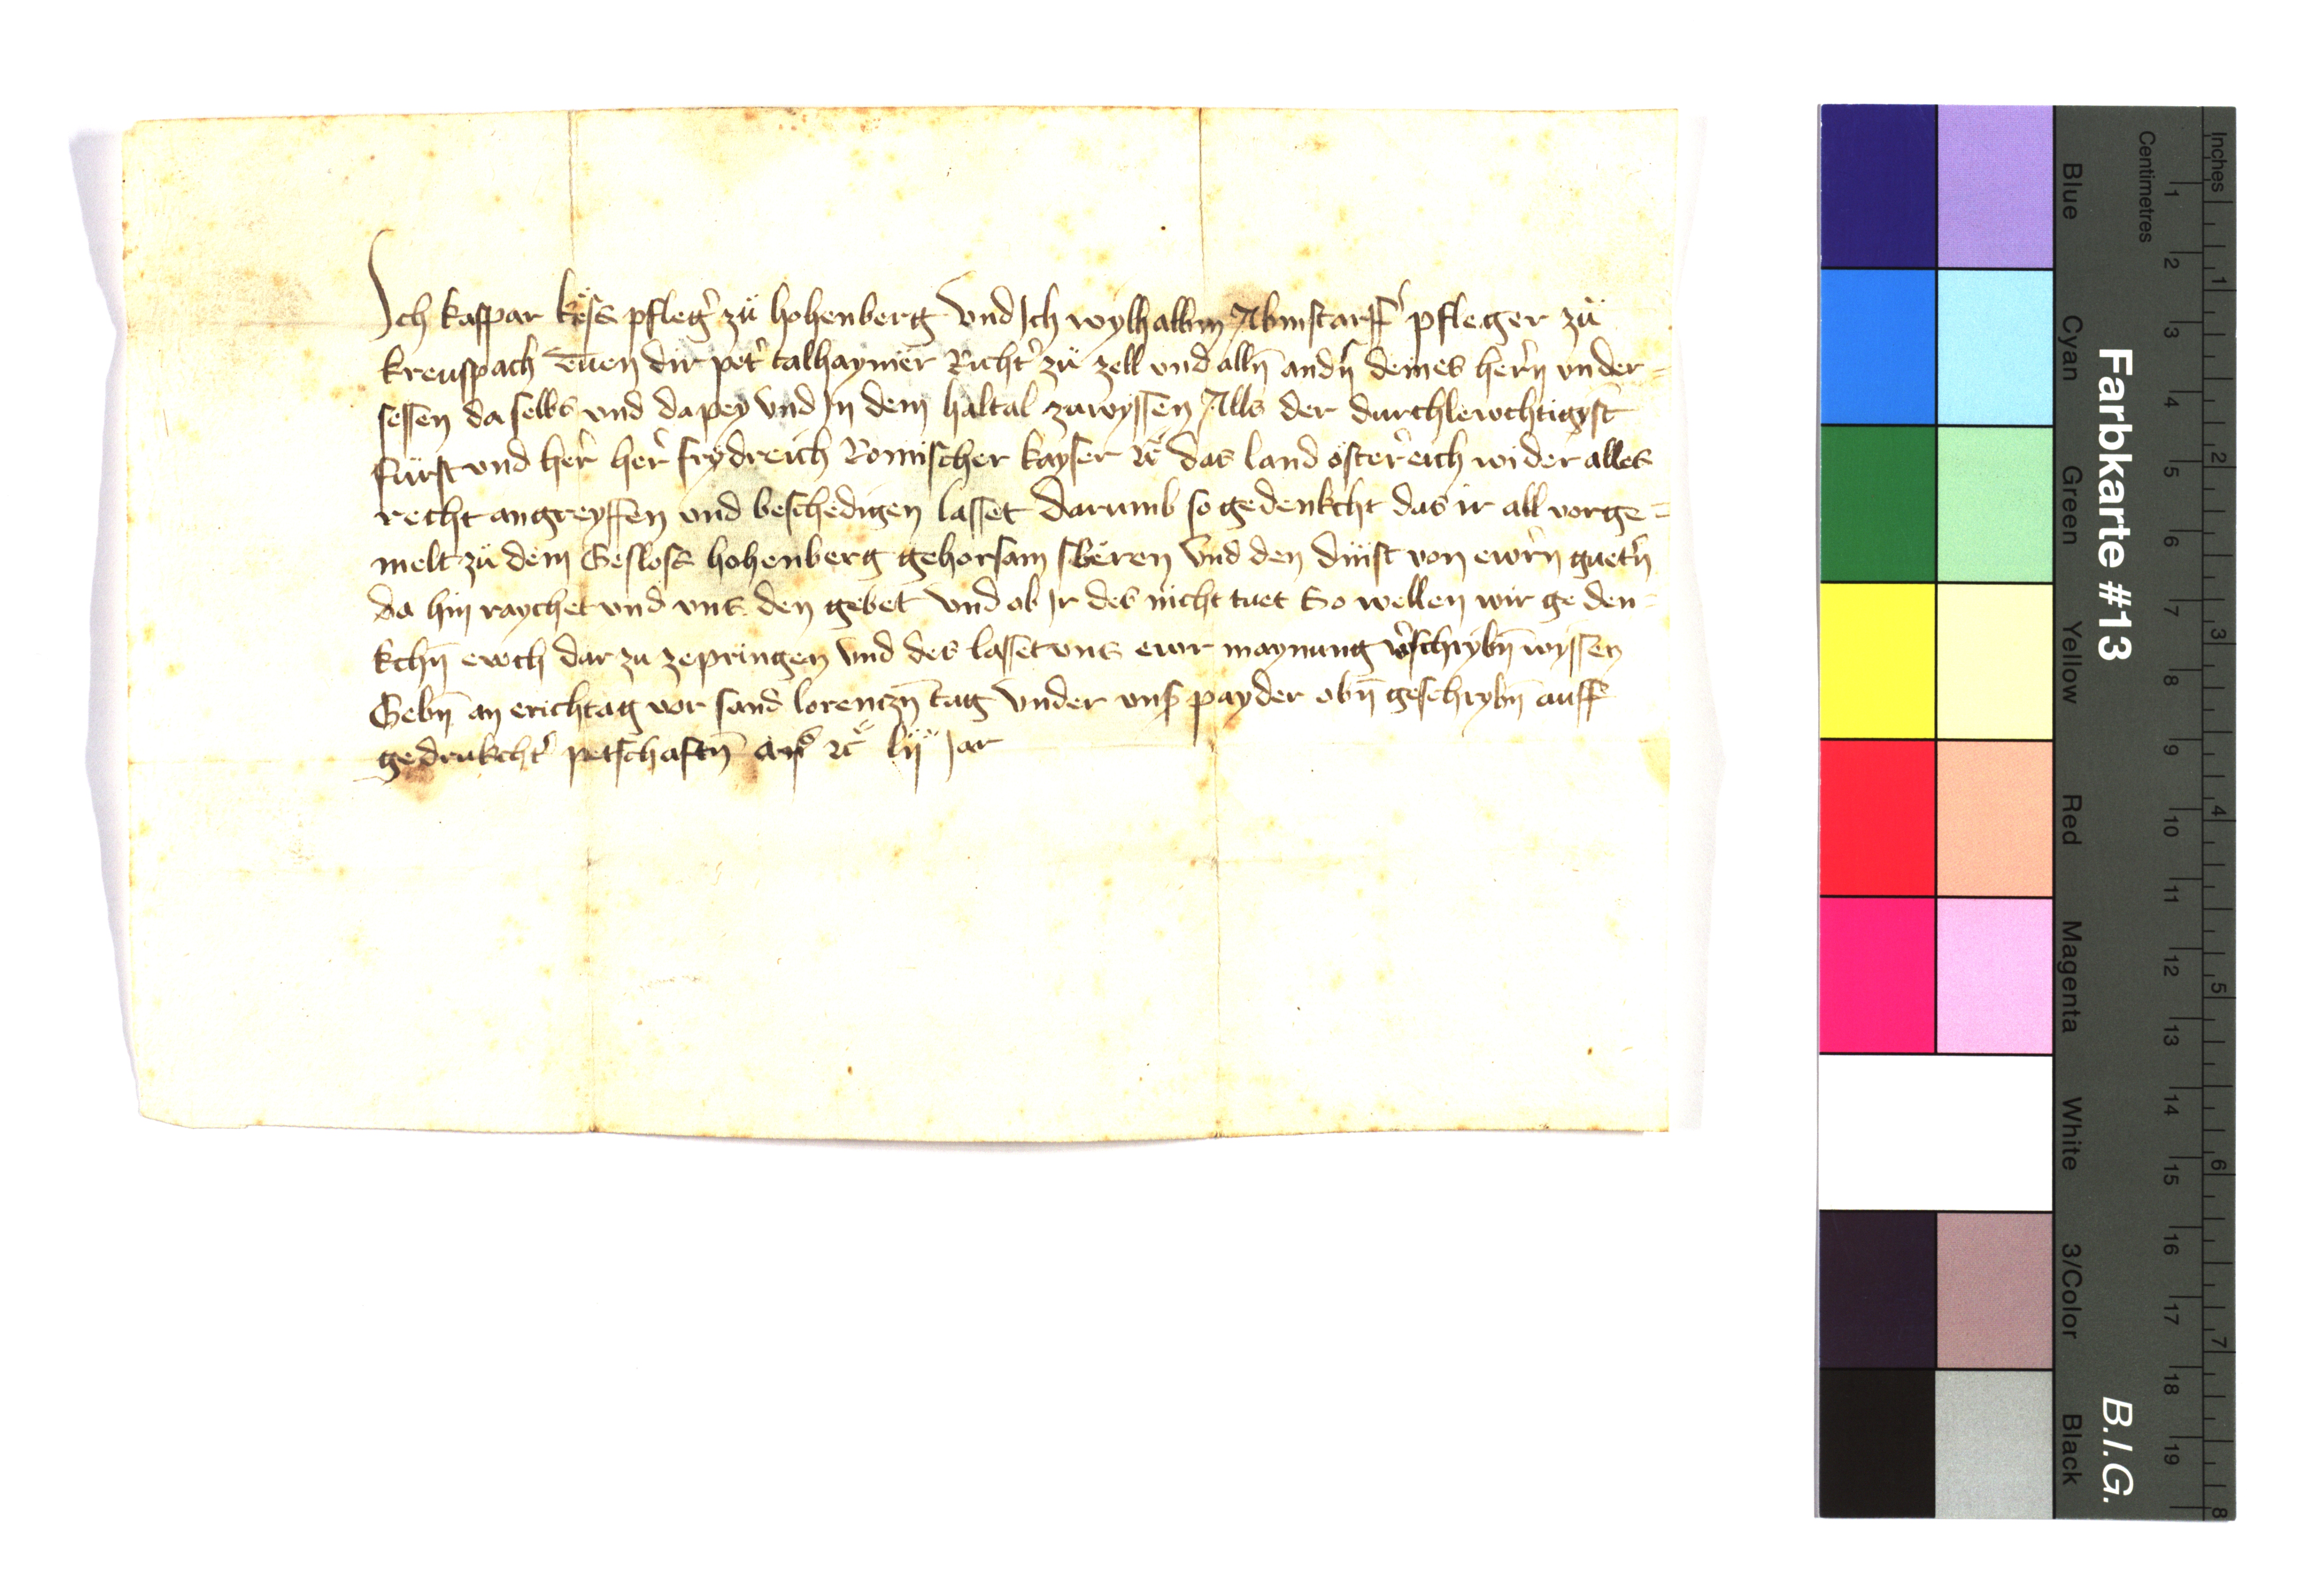 Ich kaspar kess pfleg' zü hohenberg Vnd Ich wylhallm pfleger zü
kreuspach Tuen dir pet' talhaymer Richt' zü zell vnd alln̄ andn̄ deines herrn vnder=
sessen daselbs vnd dapey vnd In dem haltal zuwyssen Alls der durchlewchtigyst
fürst vnd her' her' frydreich Romischer kayser ꝛc das land öster'eich wider alles
recht angreyffen vnd beschedigen lasset Darumb so gedenkcht das ir all vorge=
melt zü dem Gesloss hohenberg gehorsam sweren Vnd den dinst von ewrn guet'n
da hin raychet vnd vns den gebet Vnd ob Ir des nicht tuet So wellen wir geden=
kchn̄ ewch dar zu zepringen Vnd des lasset vns ewr maynung v'schrybn̄ wyssen
Gebn̄ an erichtag vor sand lorenczn̄ tag Vnder vns' payder obn̄ geschrybn̄ auff
gedrukcht' petschaftn̄ ꝛc lij Jar
Farbkarte #13
B.I.G.
Inches 1 2 3 4 5 6 7 8
Centimetres 1 2 3 4 5 6 7 8 9 10 11 12 13 14 15 16 17 18 19
Blue Cyan Green Yellow Red Magenta White 3/Color Black